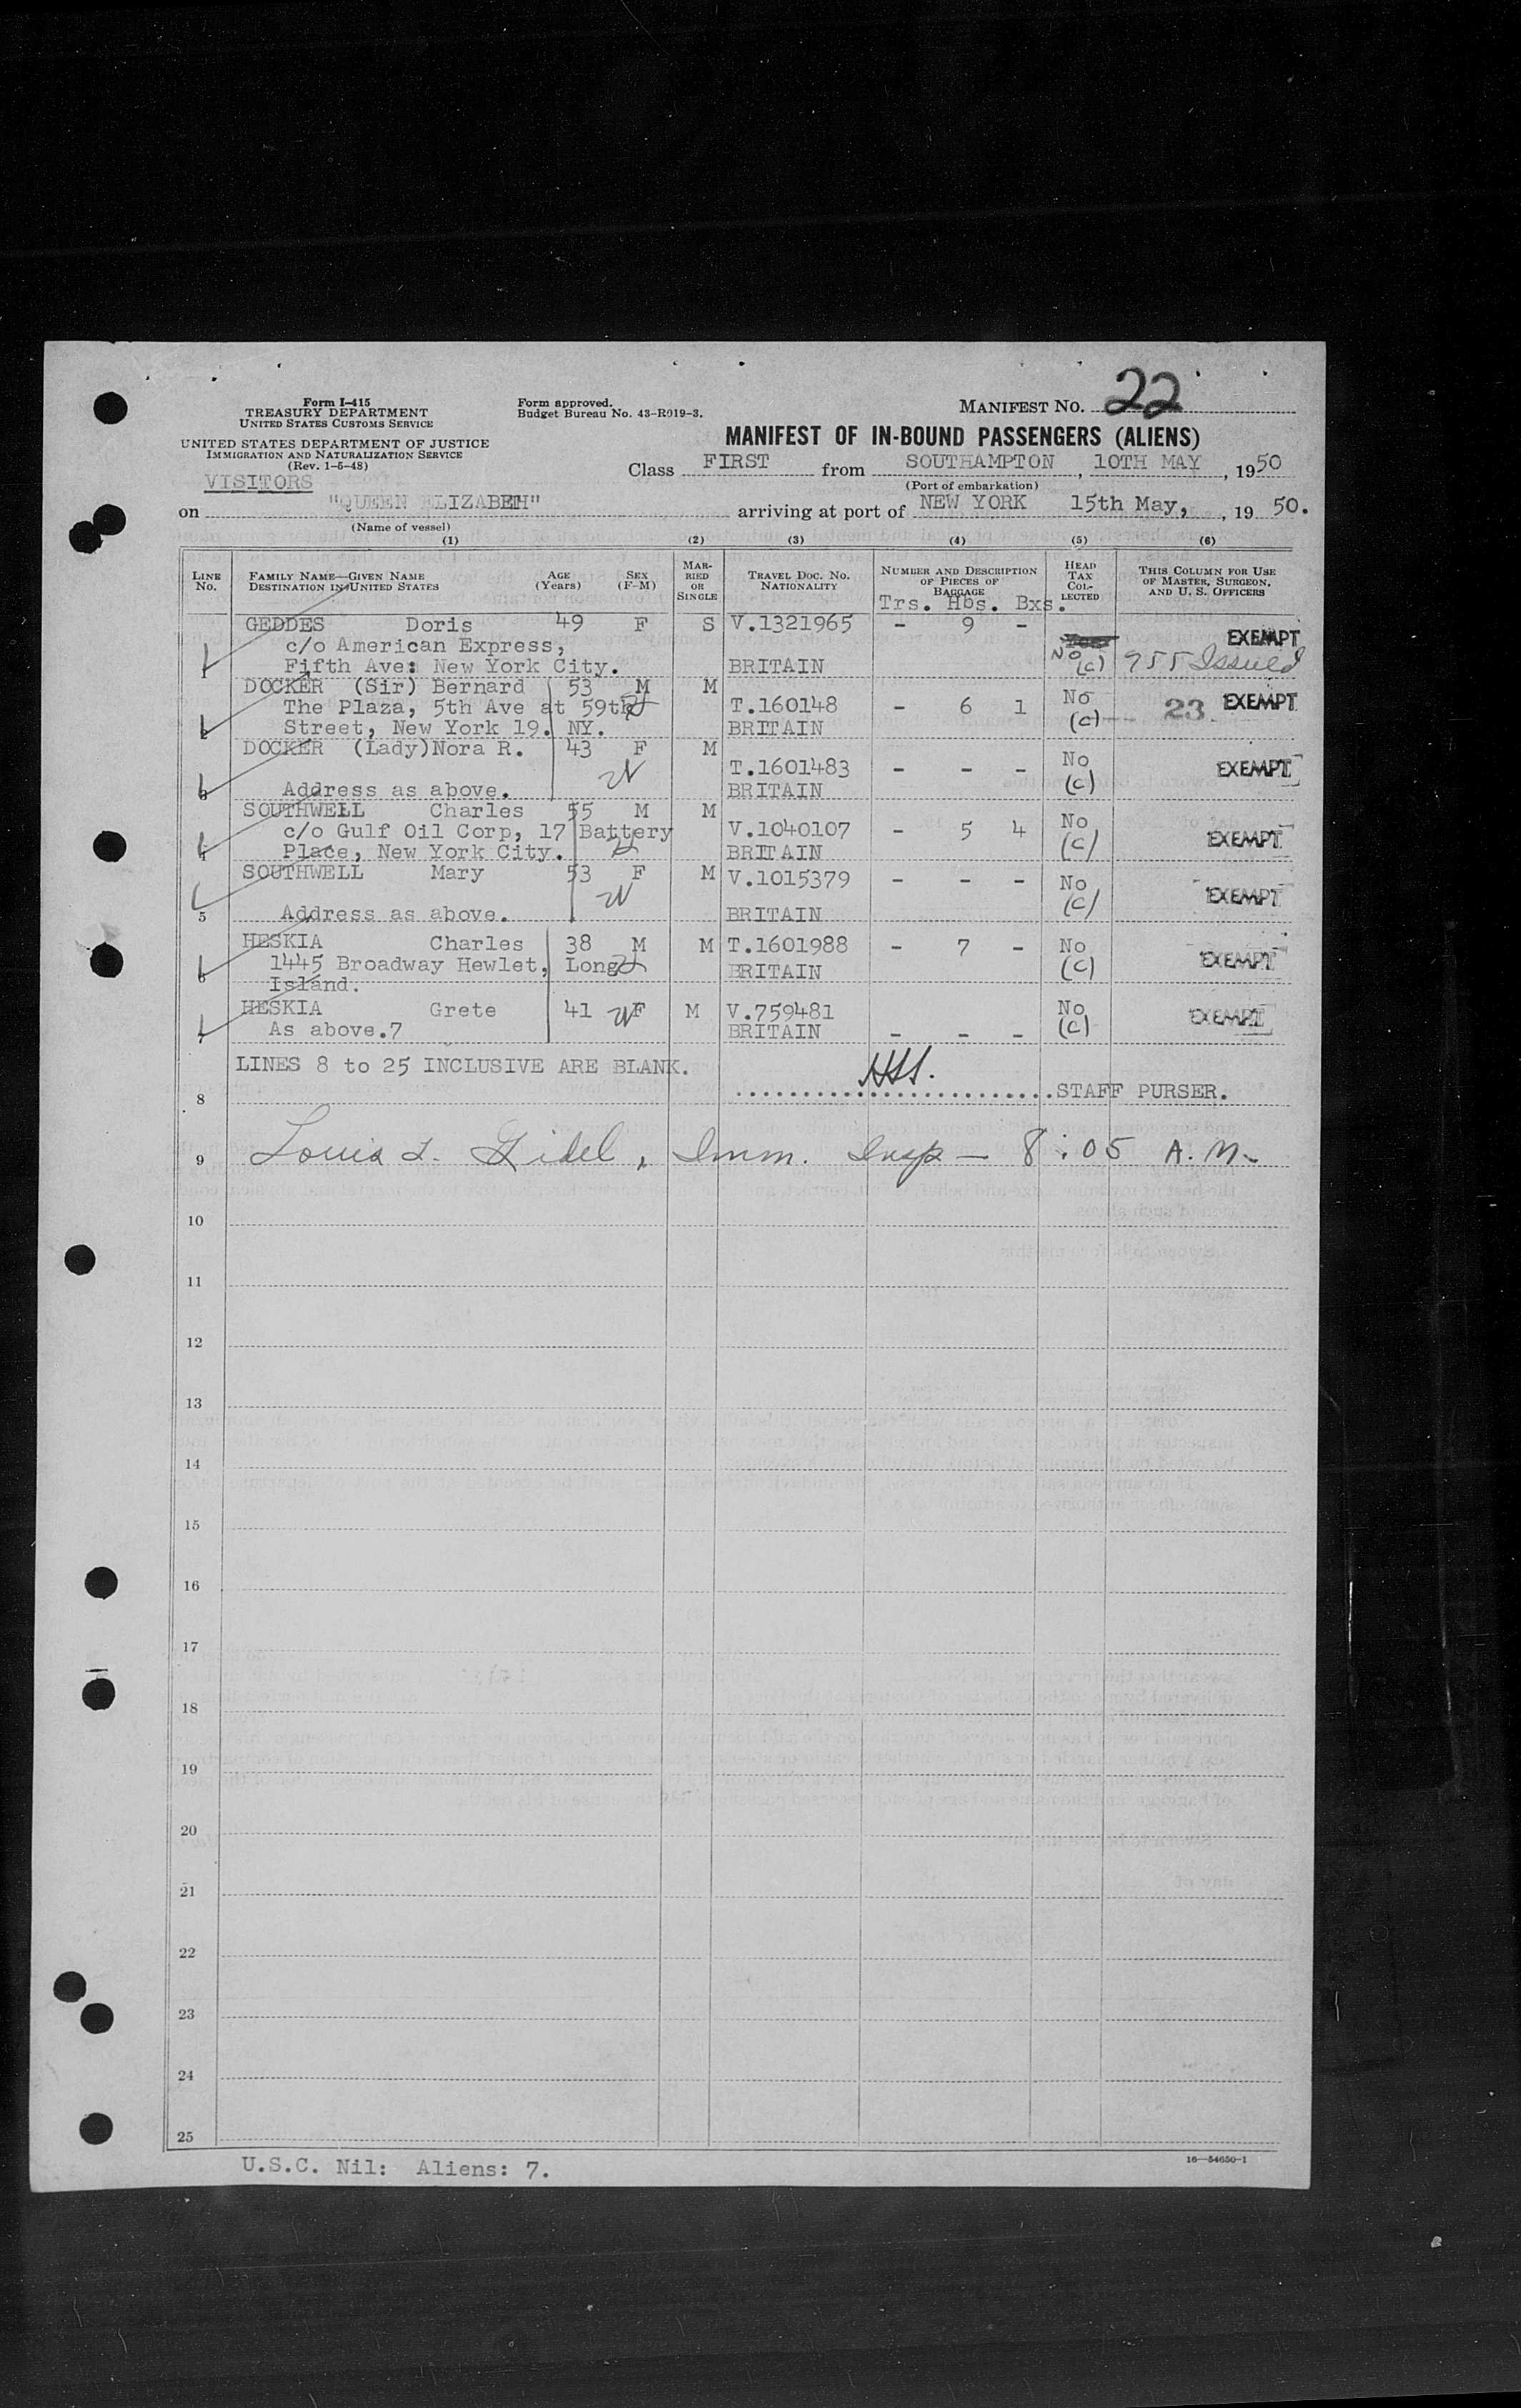 MANIFEST NO. 22
Form I-415
TREASURY DEPARTMENT
UNITED STATES CUSTOMS SERVICE
Form approved.
Budget Bureau No. 43-R019-3.
UNITED STATES DEPARTMENT OF JUSTICE
IMMIGRATION AND NATURALIZATION SERVICE
(Rev. 1-5-48)
MANIFEST OF IN-BOUND PASSENGERS (ALIENS)
VISITORS
Class FIRST from SOUTHAMPTON, 10TH MAY, 1950
(Port of embarkation)
on "QUEEN ELIZABEH" arriving at port of NEW YORK 15th May, , 19 50.
(Name of vessel)
(1) (2) (3) (4) (5) (6)
LINE NO. FAMILY NAME—GIVEN NAME DESTINATION IN UNITED STATES AGE (Years) SEX (F-M) MARRIED OR SINGLE TRAVEL DOC. NO. NATIONALITY NUMBER AND DESCRIPTION OF PIECES OF BAGGAGE HEAD TAX COLLECTED THIS COLUMN FOR USE OF MASTER, SURGEON, AND U. S. OFFICERS
Trs. Hbs. Bxs.
GEDDES Doris 49 F S V.1321965 - 9 - EXEMPT
c/o American Express,
1 Fifth Ave: New York City. BRITAIN No (c) 955 Issued
DOCKER (Sir) Bernard 53 M M No EXEMPT
The Plaza, 5th Ave at 59th T.160148 - 6 1 (c) 23
2 Street, New York 19. NY. BRITAIN
DOCKER (Lady)Nora R. 43 F M No
T.1601483 - - - EXEMPT
3 Address as above. BRITAIN (c)
SOUTHWELL Charles 55 M M No
c/o Gulf Oil Corp, 17 Battery V.1040107 - 5 4 EXEMPT
4 Place, New York City. BRITAIN (c)
SOUTHWELL Mary 53 F M V.1015379 - - - No EXEMPT
5 Address as above. BRITAIN (c)
HESKIA Charles 38 M M T.1601988 - 7 - No
6 1445 Broadway Hewlet, Long BRITAIN (c) EXEMPT
Island.
HESKIA Grete 41 F M V.759481 No EXEMPT
7 As above.7 BRITAIN - - - (c)
LINES 8 to 25 INCLUSIVE ARE BLANK.
8 ........................STAFF PURSER.
9 Louis L. Gidel, Imm. Insp — 8:05 A.M.
10
11
12
13
14
15
16
17
18
19
20
21
22
23
24
25
U.S.C. Nil: Aliens: 7.
16—54650-1